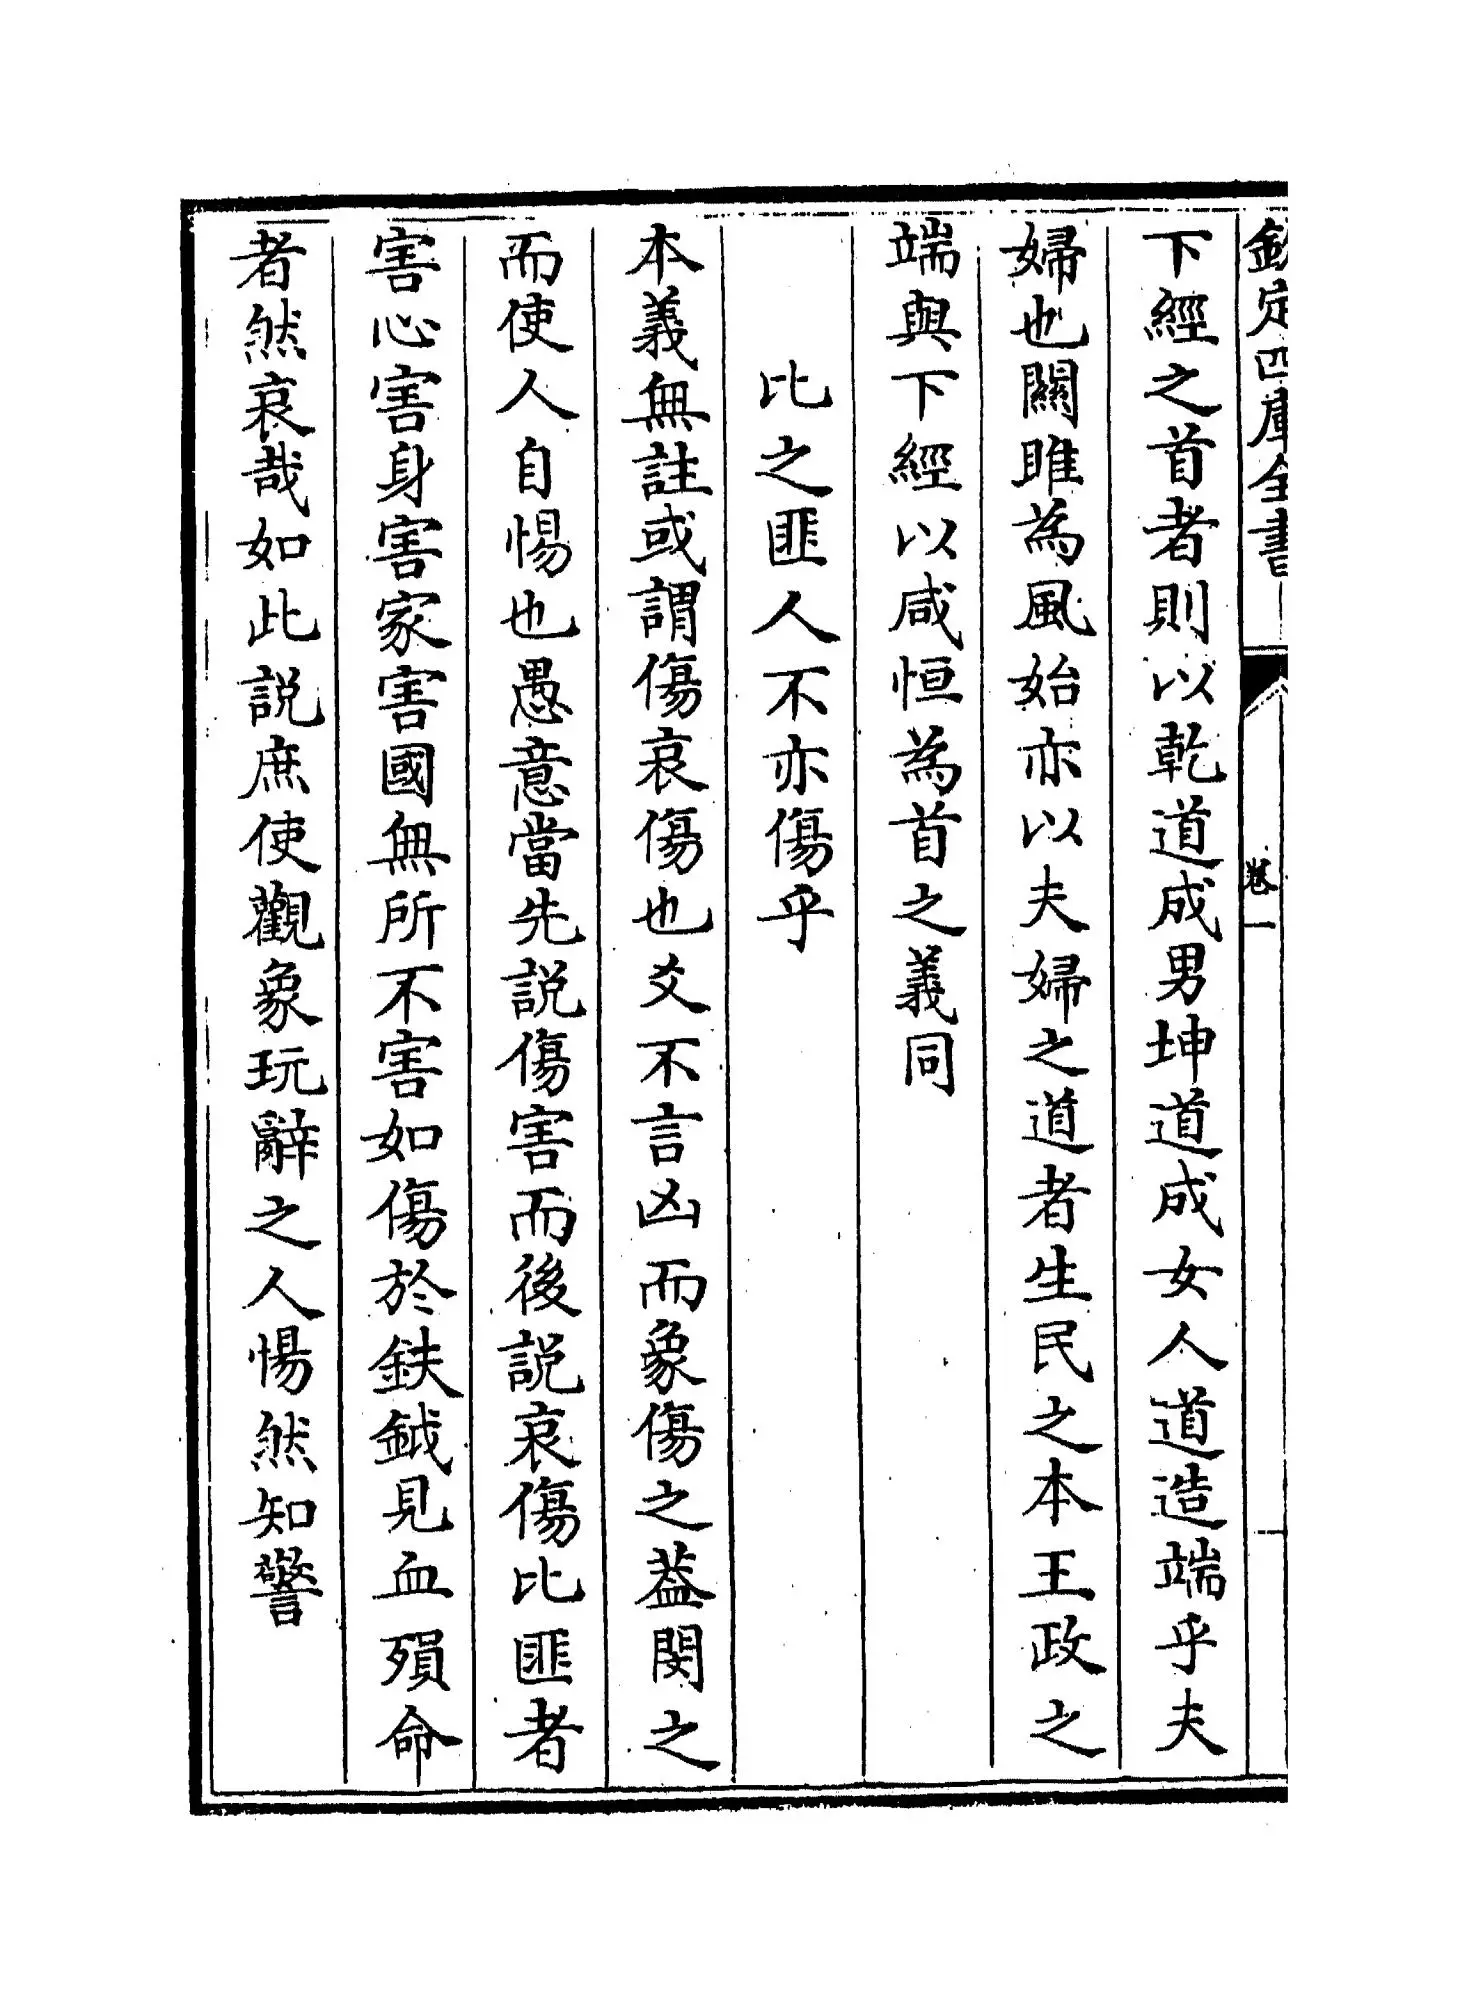 欽定四庫全書
卷一
下經之首者則以乾道成男坤道成女人道造端乎夫
婦也關雎為風始亦以夫婦之道者生民之本王政之
端與下經以咸恒為首之義同
比之匪人不亦傷乎
本義無註或謂傷哀傷也爻不言凶而象傷之葢閔之
而使人自惕也愚意當先説傷害而後説哀傷比匪者
害心害身害家害國無所不害如傷於鈇鉞見血殞命
者然哀哉如此説庶使觀象玩辭之人惕然知警